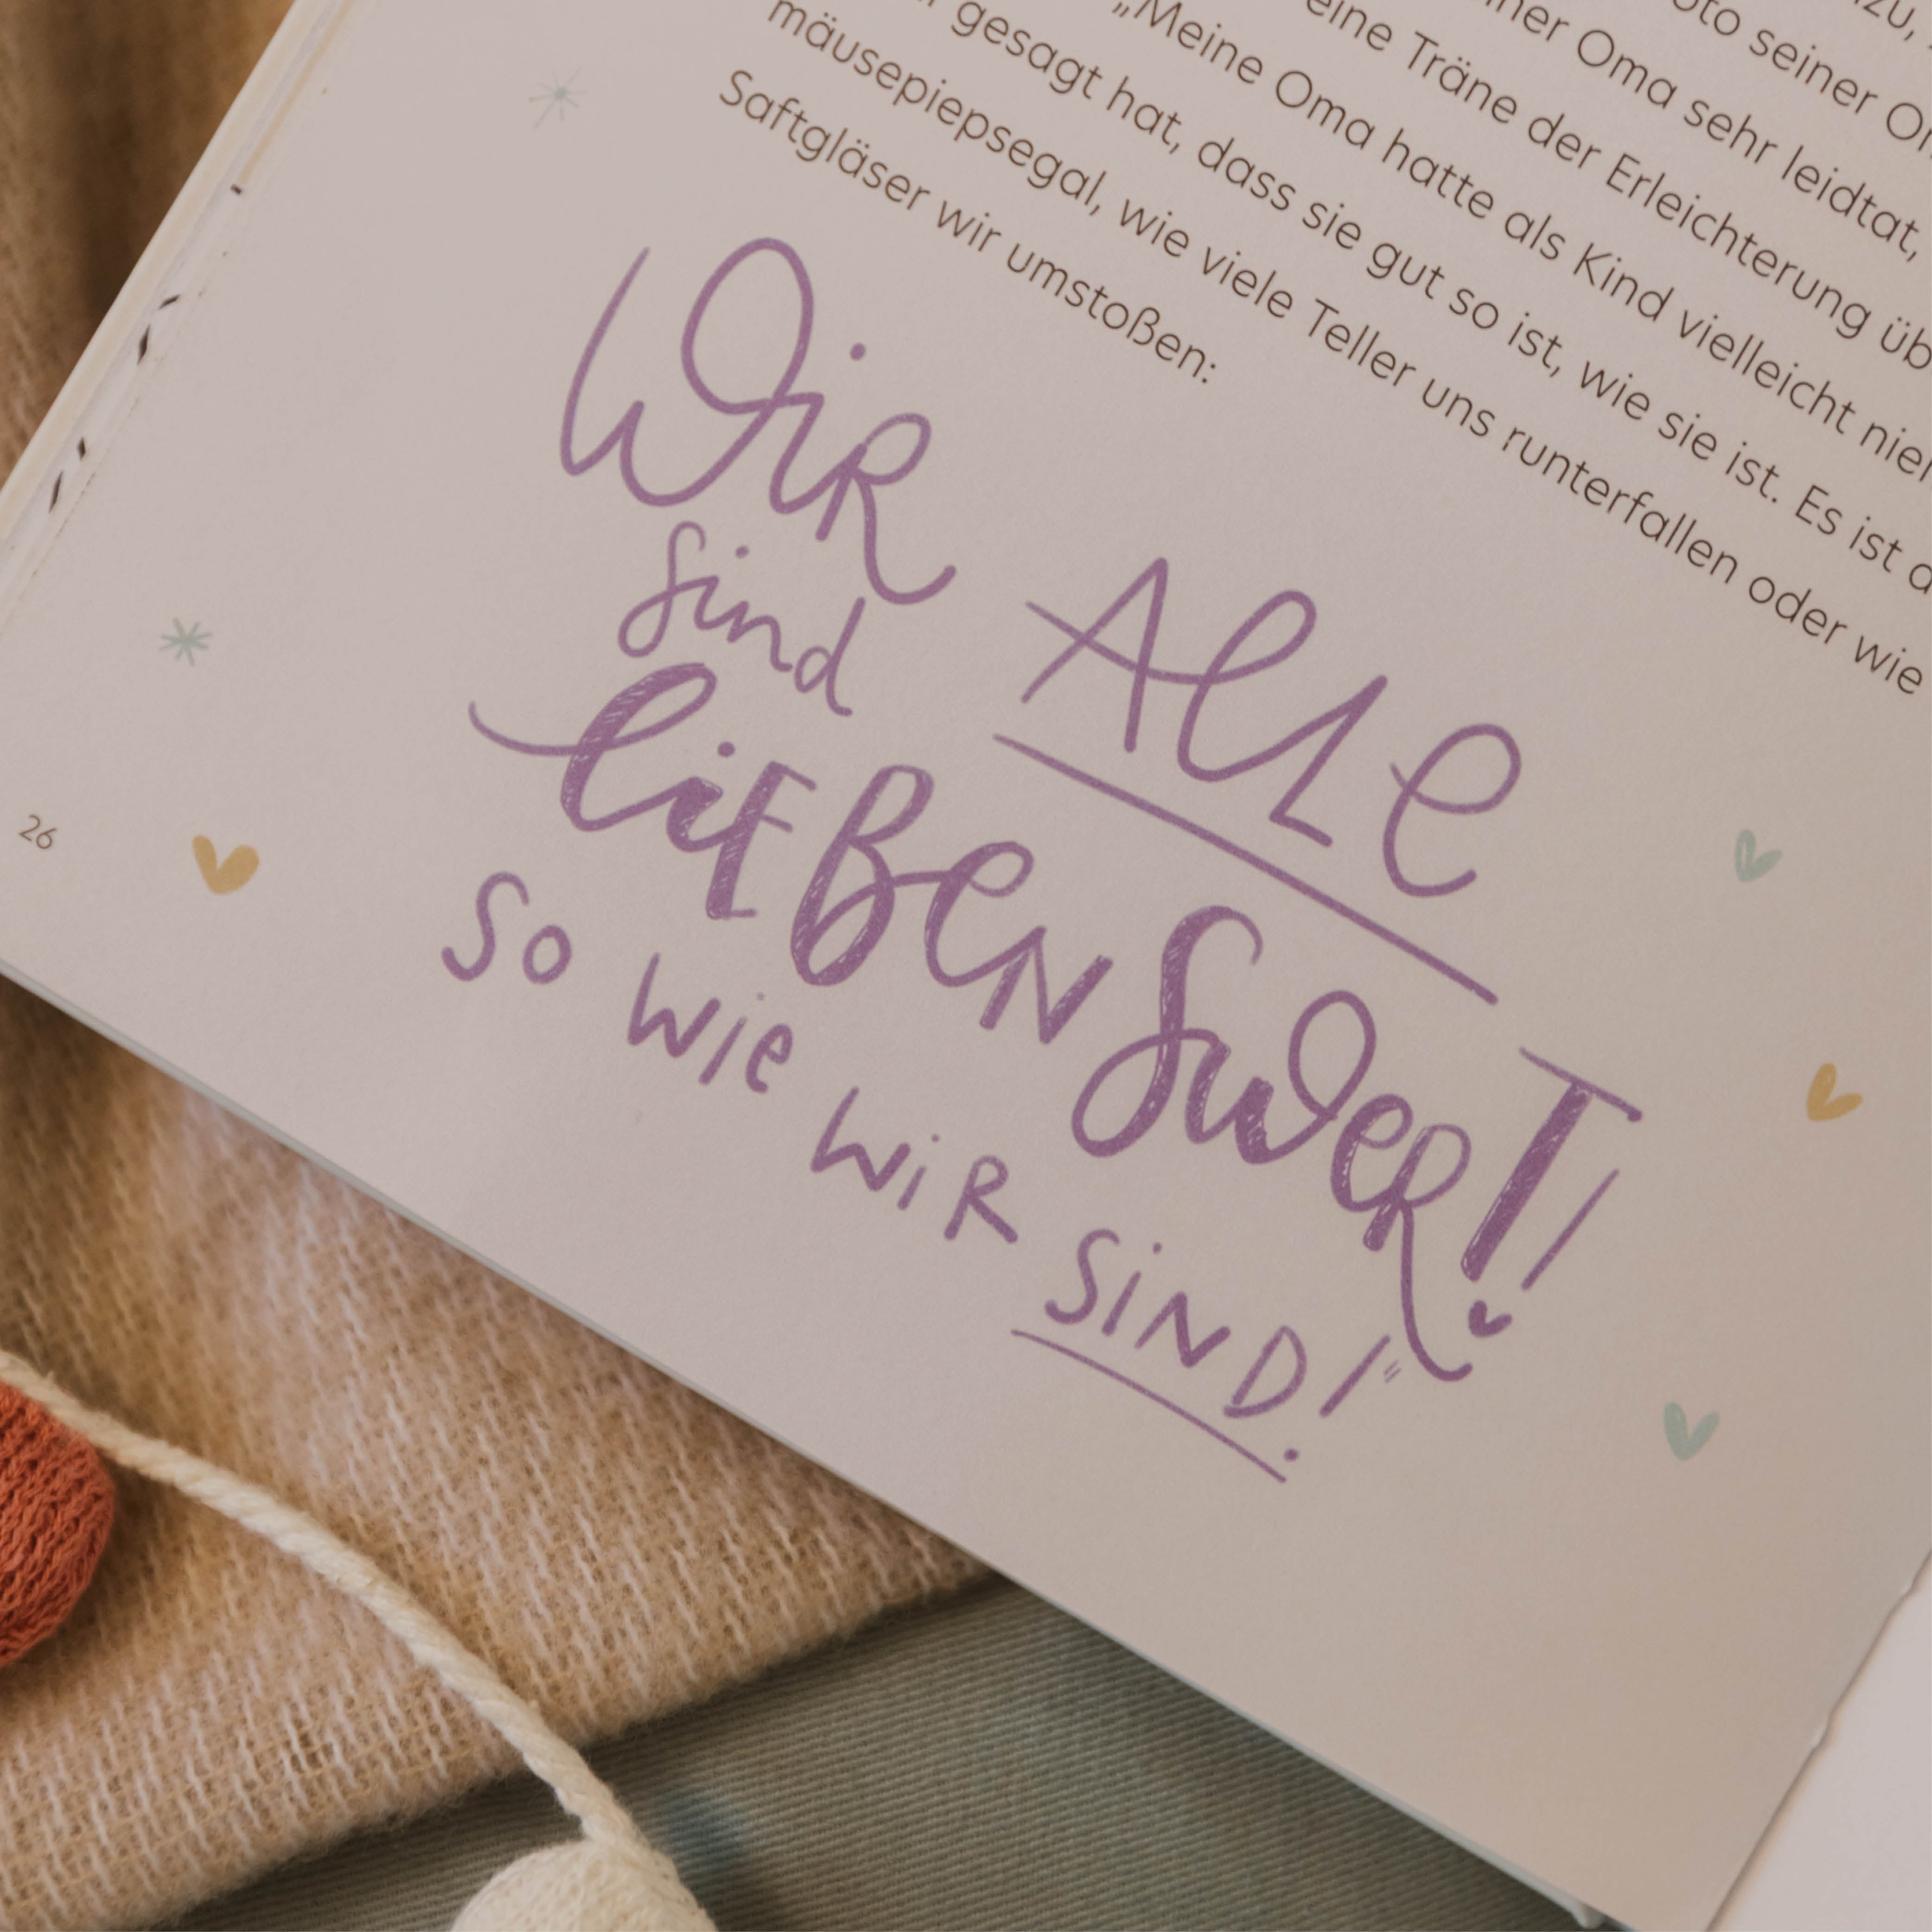 zu,
oto seiner
ner Oma sehr leidtat,
eine Träne der Erleichterung
„Meine Oma hatte als Kind vielleicht
gesagt hat, dass sie gut so ist, wie sie ist. Es ist
mäusepiepsegal, wie viele Teller uns runterfallen oder wie
Saftgläser wir umstoßen:
WIR ALLE
sind
LIEBENSWERT!
SO WIE WIR SIND!"
26